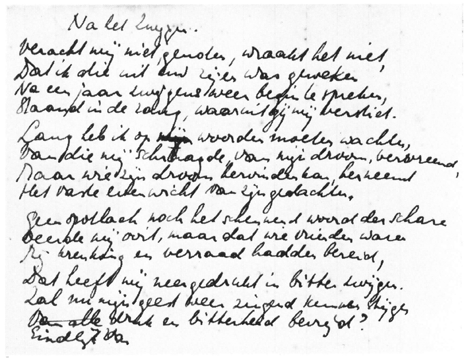 Na het zwijgen.
Veracht mij niet, genoten, wraakt het niet,
Dat ik die uit uw zijen was geweken
Na een jaar zwijgens weer begin te spreken,
Staand in de zang, waaruit gij mij verstiet.
Lang heb ik op mijn woorden moeten wachten,
Van die mij schraagde, van mijn droom, vervreemd,
Maar wie zijn droom hervinden kan, herneemt
Het vaste evenwicht van zijn gedachten.
Geen spotlach noch het schennend woord der schare
Deerde mij ooit, maar dat wie vrienden waren
Mij krenking en verraad hadden bereid,
Dat heeft mij neergedrukt in bitter zwijgen.
Zal nu mijn geest weer zingend kunnen stijgen
Van alle druk en bitterheid bevrijd?
Eindlijk van